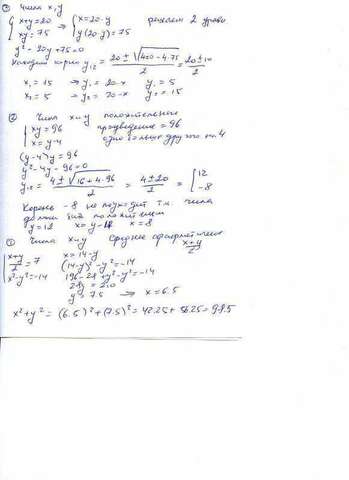 ① Числа x, y
{ x+y=20 ⇒ { x=20-y решаем 2 уравн
{ xy=75 { y(20-y)=75
y²-20y+75=0
Находим корни y₁,₂ = (20±√(400-4·75))/2 = (20±10)/2
x₁=15 ⇒ y₁=20-x y₁=5
x₂=5 ⇒ y₂=20-x y₂=15
② Числа x и y положительные
{ xy=96 произведение =96
{ x=y-4 одно больше другого на 4
(y-4)y=96
y²-4y-96=0
y₁,₂ = (4±√(16+4·96))/2 = (4±20)/2 = [ 12
-8
Корень -8 не подходит т.к. числа
должны быть положительны
y=12 x=y-4 x=8
③ Числа x и y среднее арифметическое (x+y)/2
{ (x+y)/2=7 x=14-y
{ x²-y²=-14 (14-y)²-y²=-14
196-28y+y²-y²=-14
28y=210
y=7.5 ⇒ x=6.5
x²+y²=(6.5)²+(7.5)²=42.25+56.25=98.5